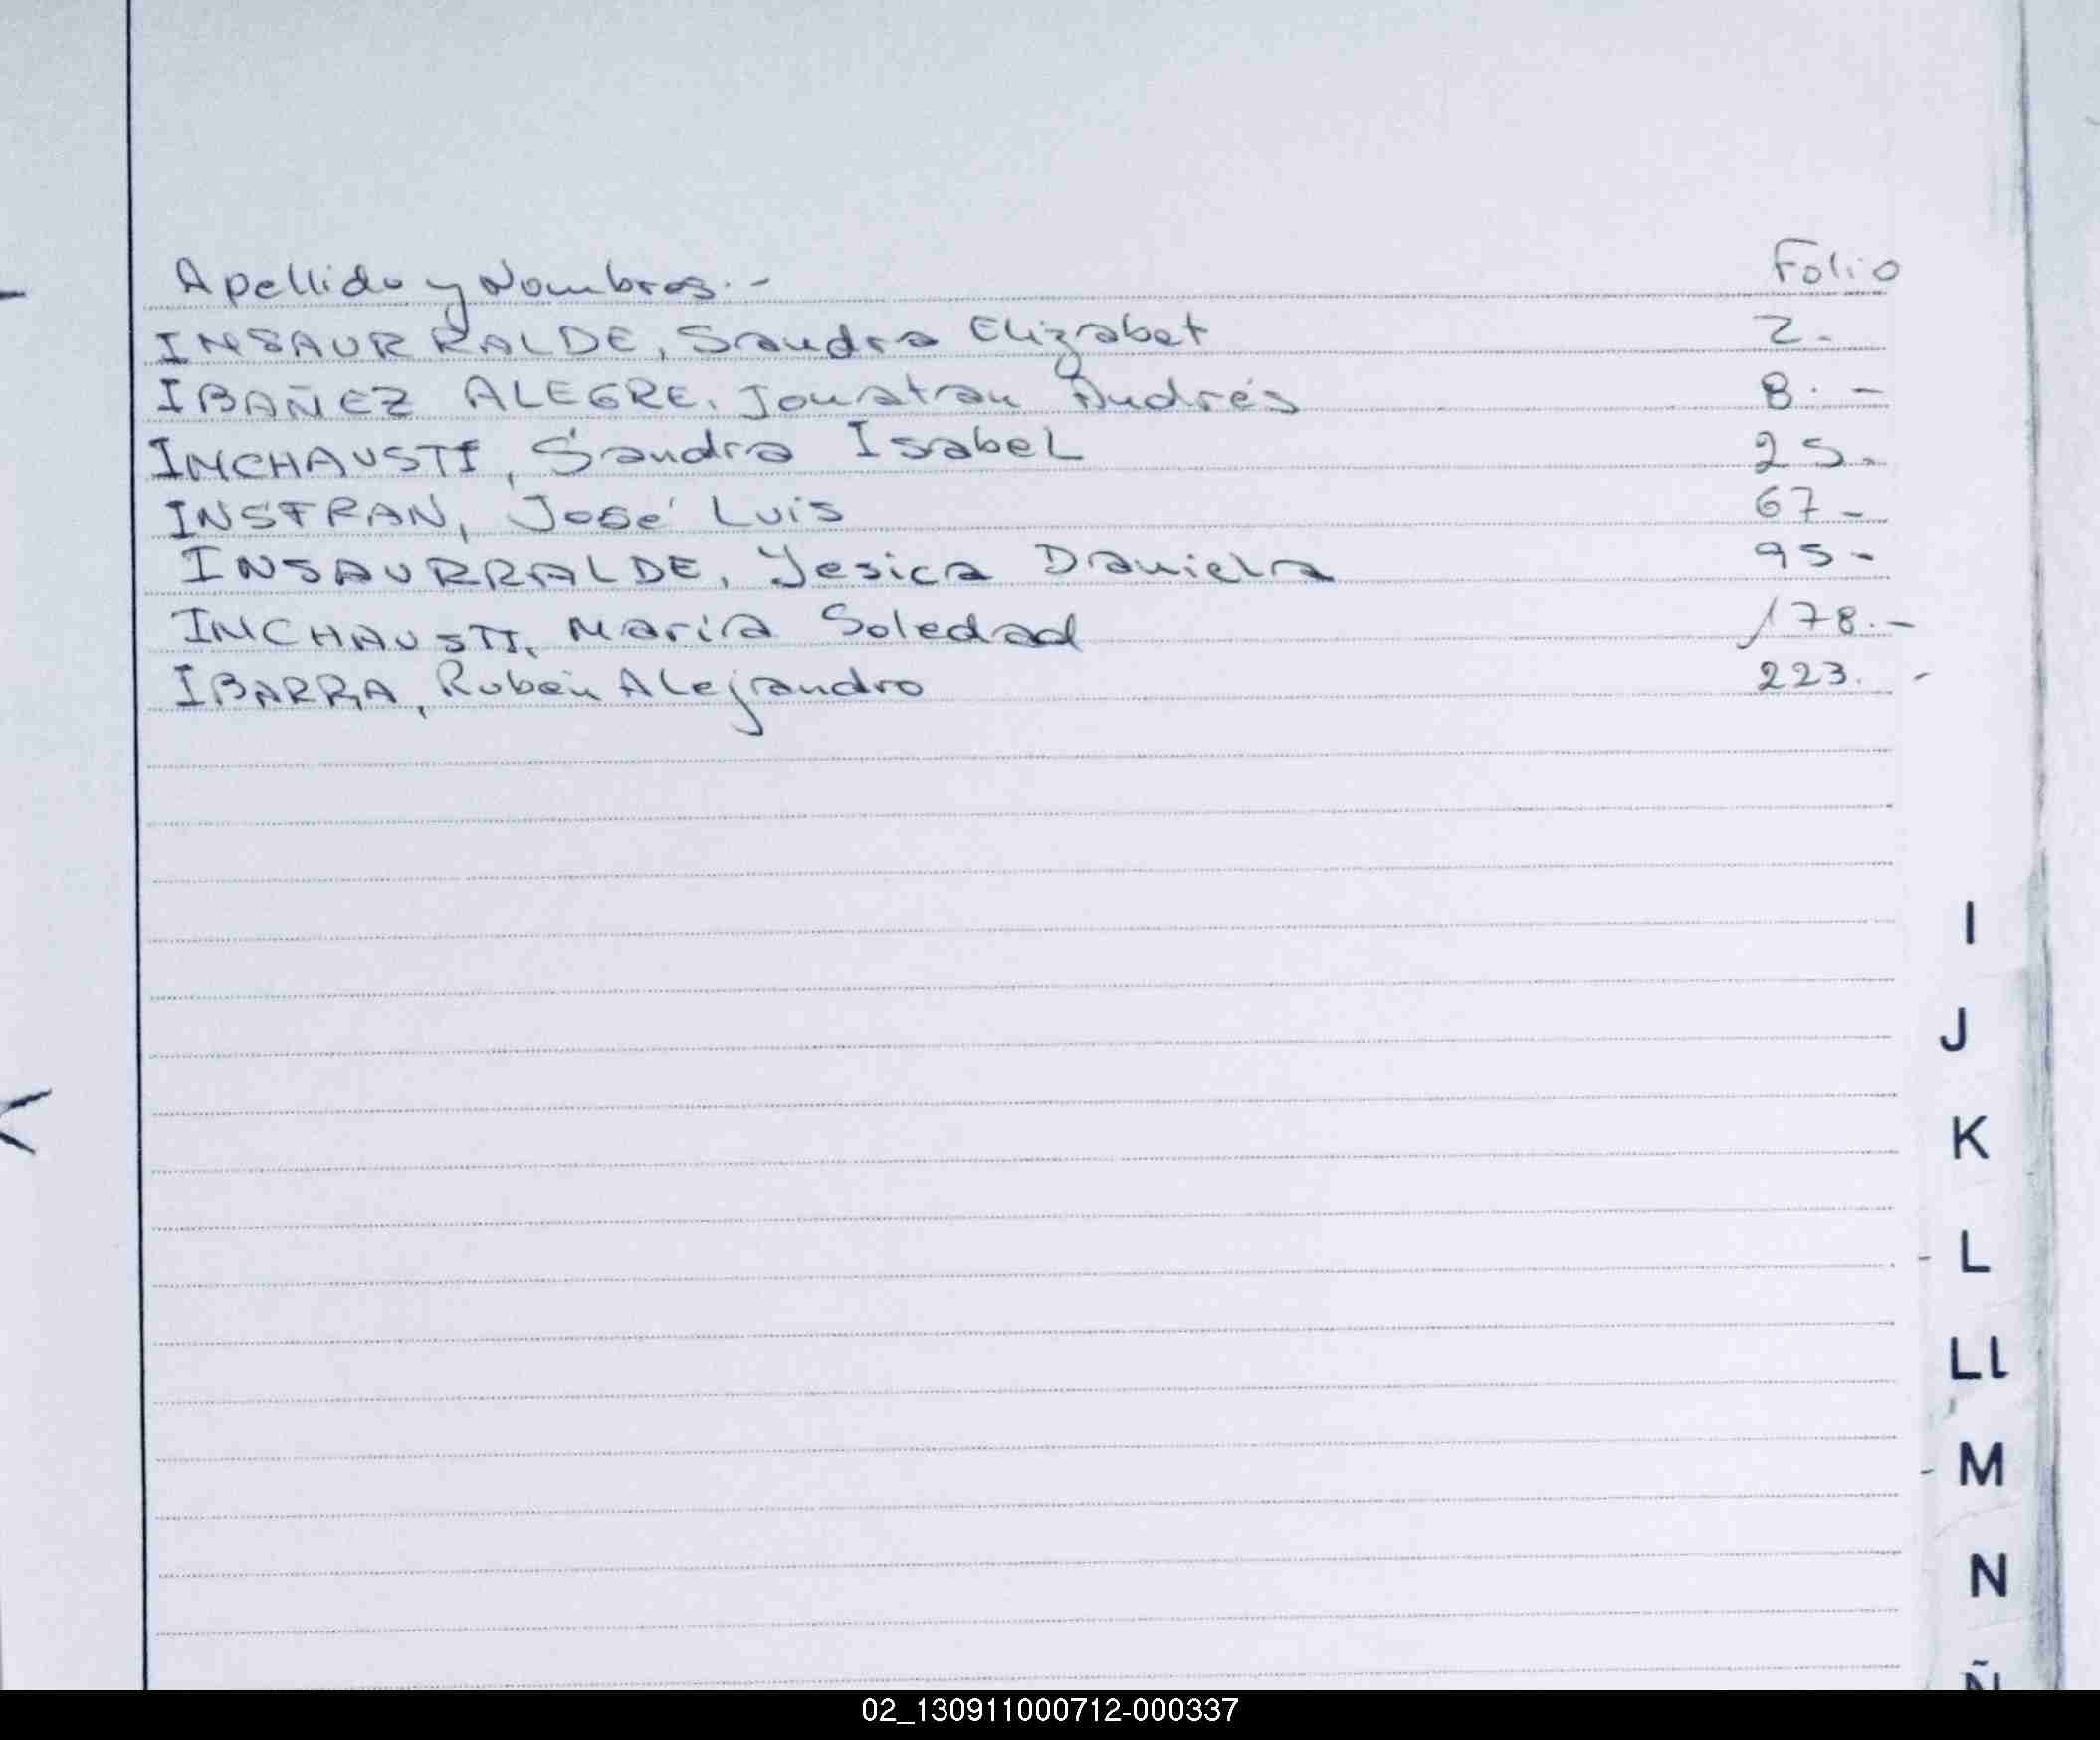 Apellido y Nombres.- Folio
INSAURRALDE, Sandra Elizabet 2.-
IBAÑEZ ALEGRE, Jonatan Andrés 8.-
INCHAUSTI, Sandra Isabel 25.-
INSFRAN, José Luis 67-
INSAURRALDE, Yesica Daniela 95-
INCHAUSTI, María Soledad 178.-
IBARRA, Rubén Alejandro 223.-
I
J
K
L
Ll
M
N
Ñ
02_130911000712-000337